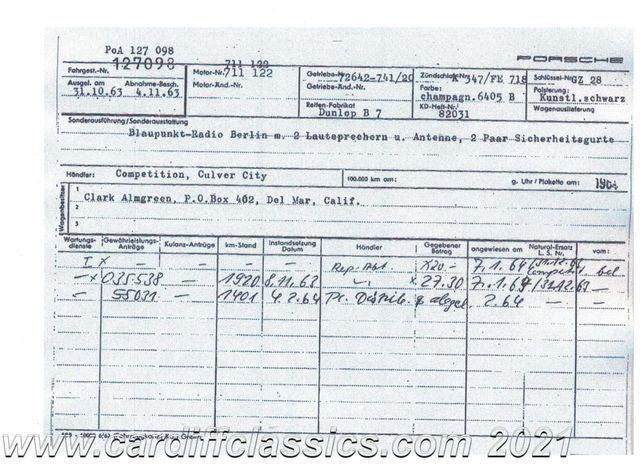 PoA 127 098
127098
PORSCHE
Fahrgest.-Nr.
Motor-Nr. 711 122
Getriebe-Nr. 72642-741/20
Zündschloß-Nr. K 347/FE 718
Schlüssel-Nr. GZ 28
Ausgel. am Abnahme-Besch.
31.10.63 4.11.63
Motor-Änd.-Nr.
Getriebe-Änd.-Nr.
Farbe: champagn.6405 B
Polsterung: Kunstl.schwarz
Reifen-Fabrikat
Dunlop B 7
KD-Heft-Nr.
82031
Wagenauslieferung
Sonderausführung/Sonderausstattung
Blaupunkt-Radio Berlin m. 2 Lautsprechern u. Antenne, 2 Paar Sicherheitsgurte
Händler: Competition, Culver City
100.000 km am:
g. Uhr / Plakette am: 1964
Wagenbesitzer
1 Clark Almgreen, P.O.Box 462, Del Mar, Calif.
2
3
Wartungs-dienste Gewährleistungs-Anträge Kulanz-Anträge km-Stand Instandsetzung Datum Händler Gegebener Betrag angewiesen am Natural-Ersatz L. S. Nr. vom:
I x — — — — Rep. Abt. 7.1.64
—x 035538 — 1920 8.11.63 27.30 7.1.64
— 55031 — 1401 4.2.64 abgel. 2.64 — —
www.cardiffclassics.com 2021